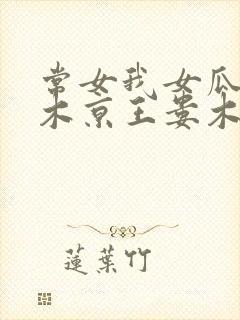 常女我女瓜
木亰王娄木
蓮葉竹